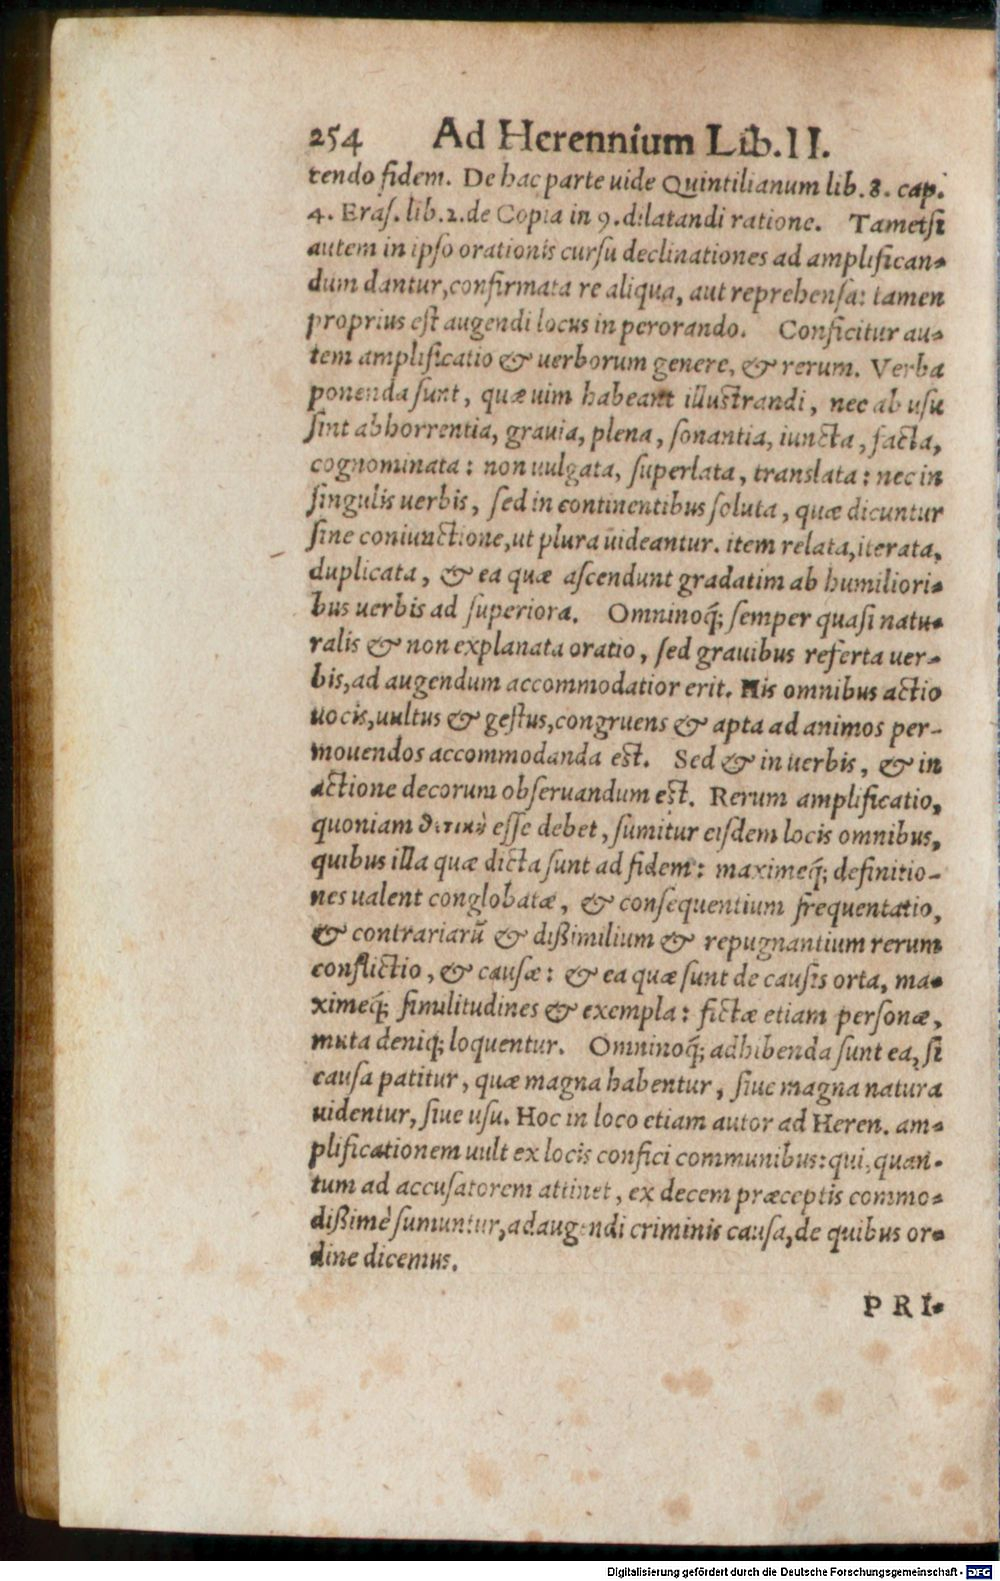 254 Ad Herennium Lib. II.
tendo fidem. De hac parte uide Quintilianum lib. 8. cap.
4. Eras. lib. 2. de Copia in 9. dilatandi ratione. Tametsi
autem in ipso orationis cursu declinationes ad amplifican-
dum dantur, confirmata re aliqua, aut reprehensa: tamen
proprius est augendi locus in perorando. Conficitur au-
tem amplificatio & uerborum genere, & rerum. Verba
ponenda sunt, quæ uim habeant illustrandi, nec ab usu
sint abhorrentia, grauia, plena, sonantia, iuncta, facta,
cognominata: non uulgata, superlata, translata: nec in
singulis uerbis, sed in continentibus soluta, quæ dicuntur
sine coniunctione, ut plura uideantur. item relata, iterata,
duplicata, & ea quæ ascendunt gradatim ab humiliori-
bus uerbis ad superiora. Omninoq́; semper quasi natu-
ralis & non explanata oratio, sed grauibus referta uer-
bis, ad augendum accommodatior erit. His omnibus actio
uocis, uultus & gestus, congruens & apta ad animos per-
mouendos accommodanda est. Sed & in uerbis, & in
actione decorum obseruandum est. Rerum amplificatio,
quoniam esse debet, sumitur eisdem locis omnibus,
quibus illa quæ dicta sunt ad fidem: maximeq́; definitio-
nes ualent conglobatæ, & consequentium frequentatio,
& contrariarũ & dißimilium & repugnantium rerum
conflictio, & causæ: & ea quæ sunt de causis orta, ma-
ximeq́; similitudines & exempla: fictæ etiam personæ,
muta deniq; loquentur. Omninoq́; adhibenda sunt ea, si
causa patitur, quæ magna habentur, siue magna natura
uidentur, siue usu. Hoc in loco etiam autor ad Heren. am-
plificationem uult ex locis confici communibus: qui, quan-
tum ad accusatorem attinet, ex decem præceptis commo-
dißimè sumuntur, ad augendi criminis causa, de quibus or-
dine dicemus.
PRI-
Digitalisierung gefördert durch die Deutsche Forschungsgemeinschaft - DFG